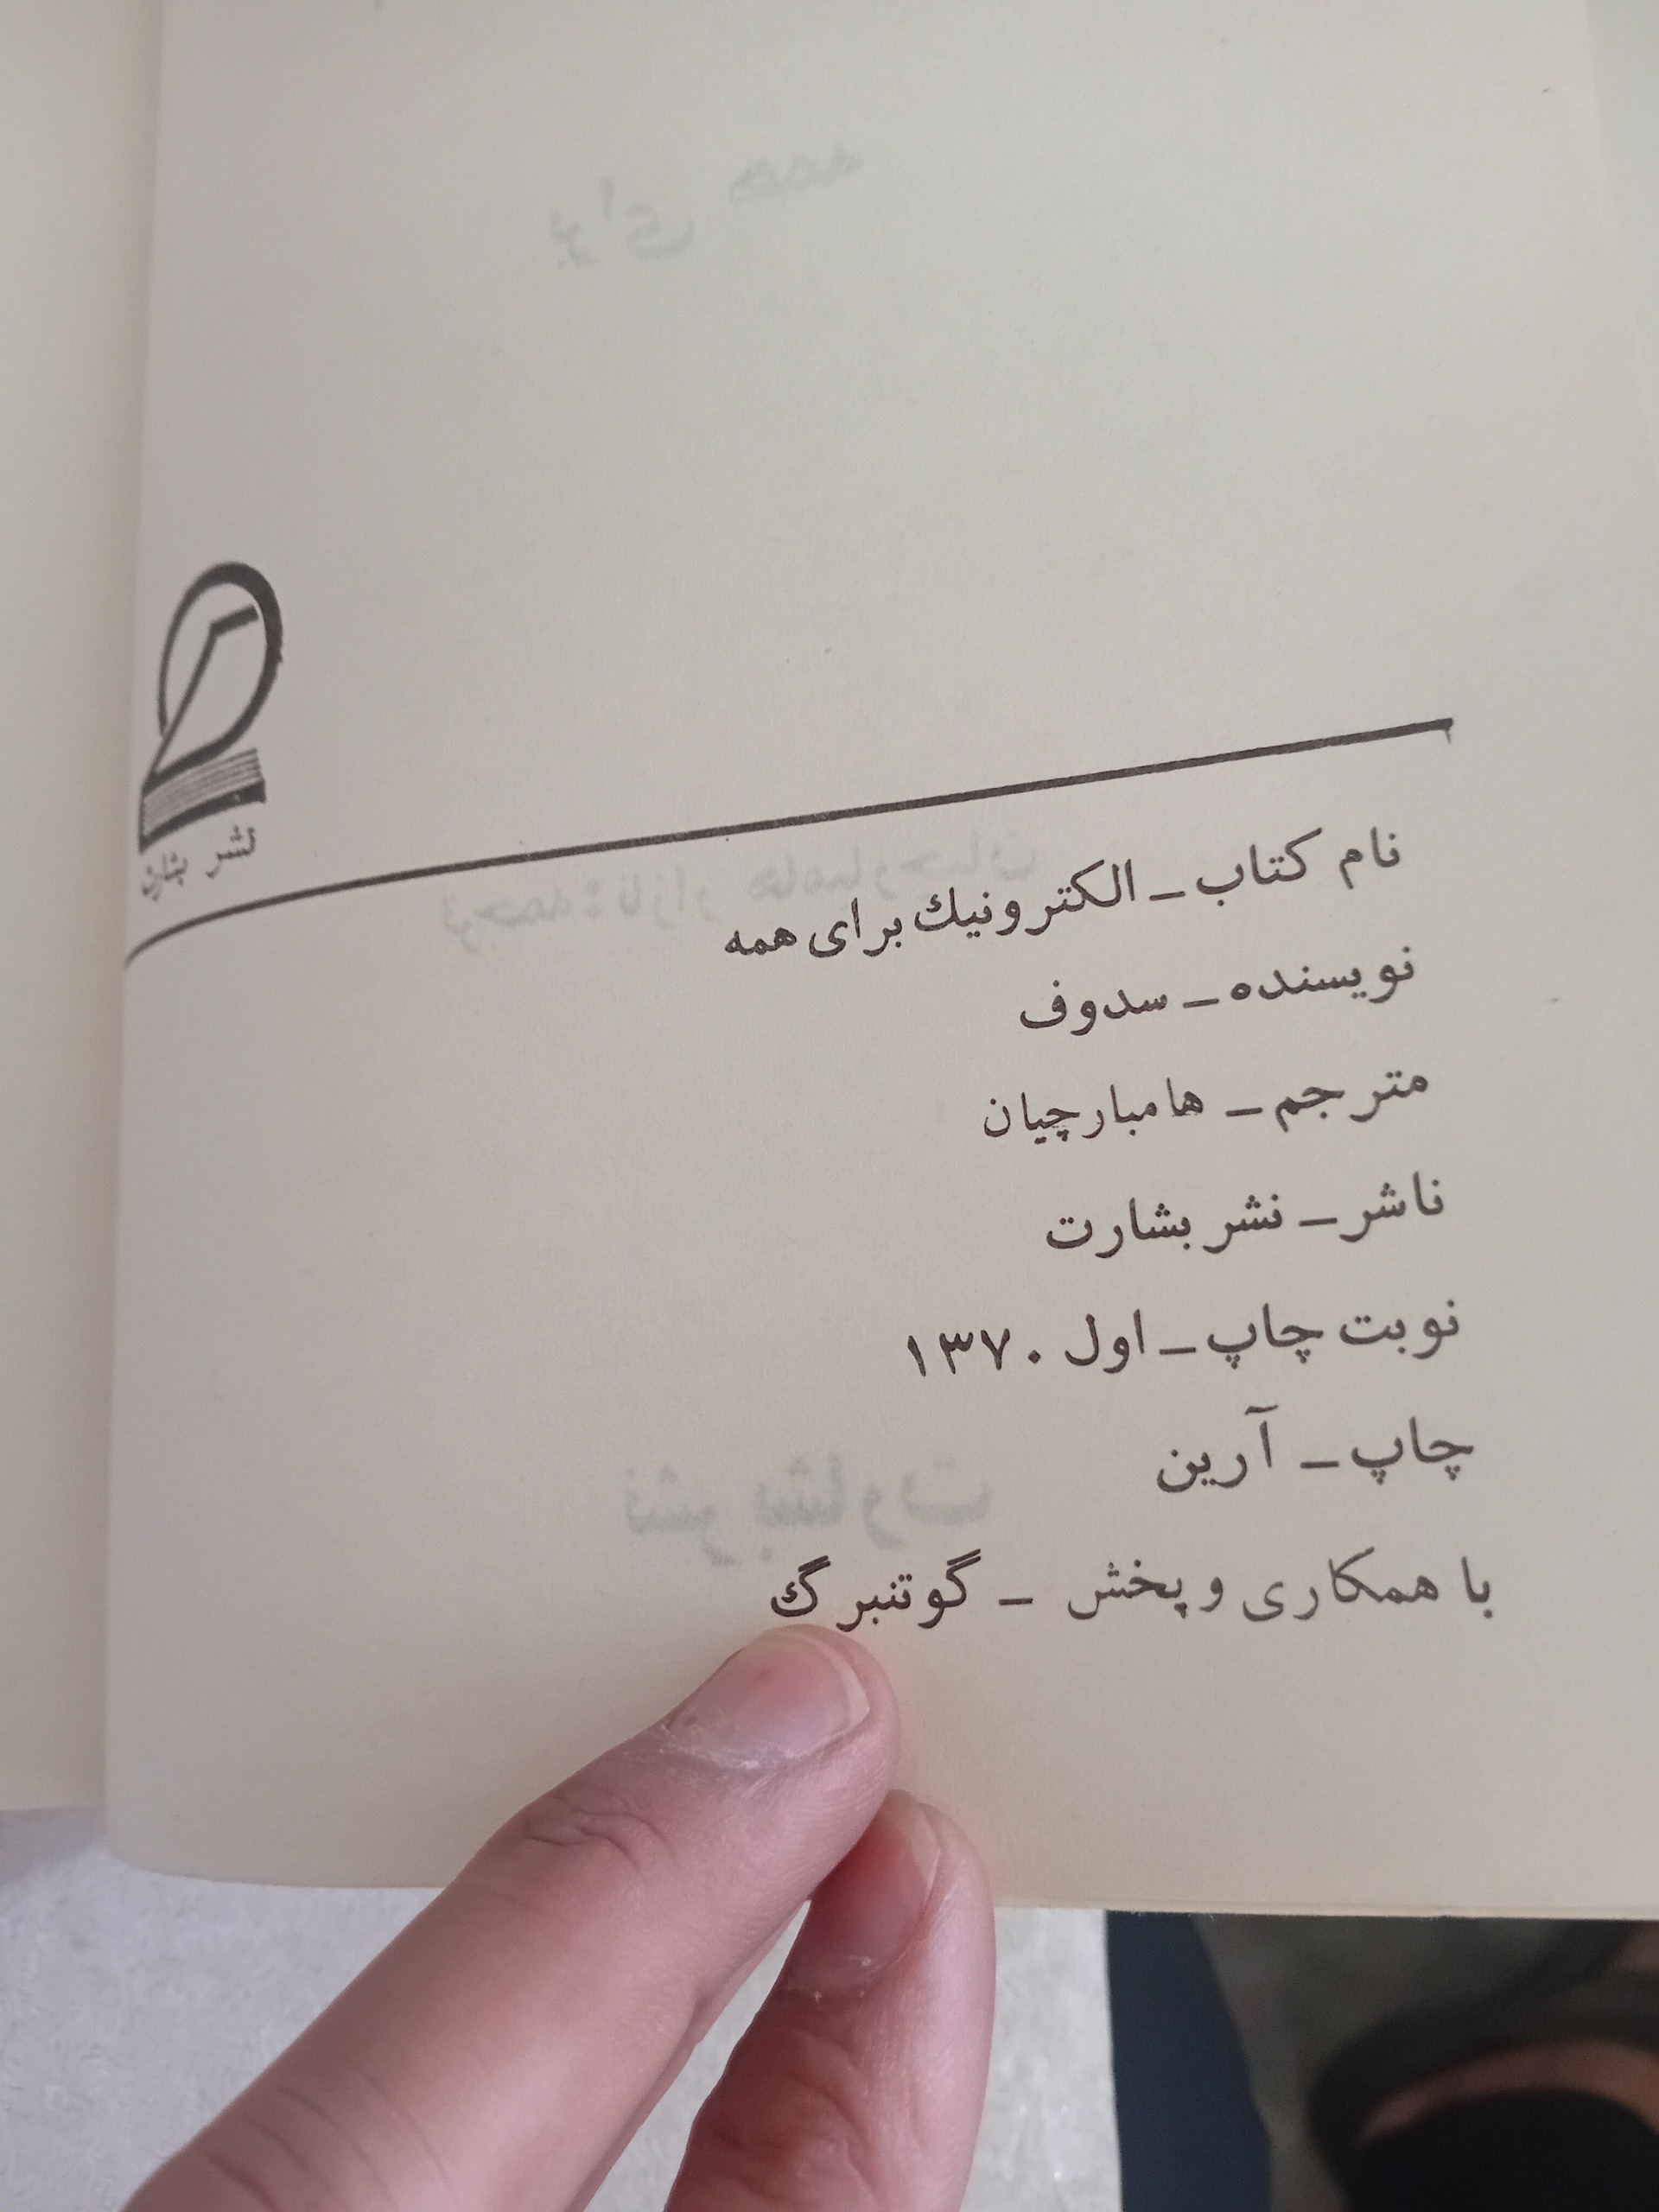 نشر بشارت
نام کتاب ـ الکترونیك برای همه
نویسنده ـ سدوف
مترجم ـ هامبارچیان
ناشر ـ نشر بشارت
نوبت چاپ ـ اول ۱۳۷۰
چاپ ـ آرین
با همکاری و پخش ـ گوتنبرگ